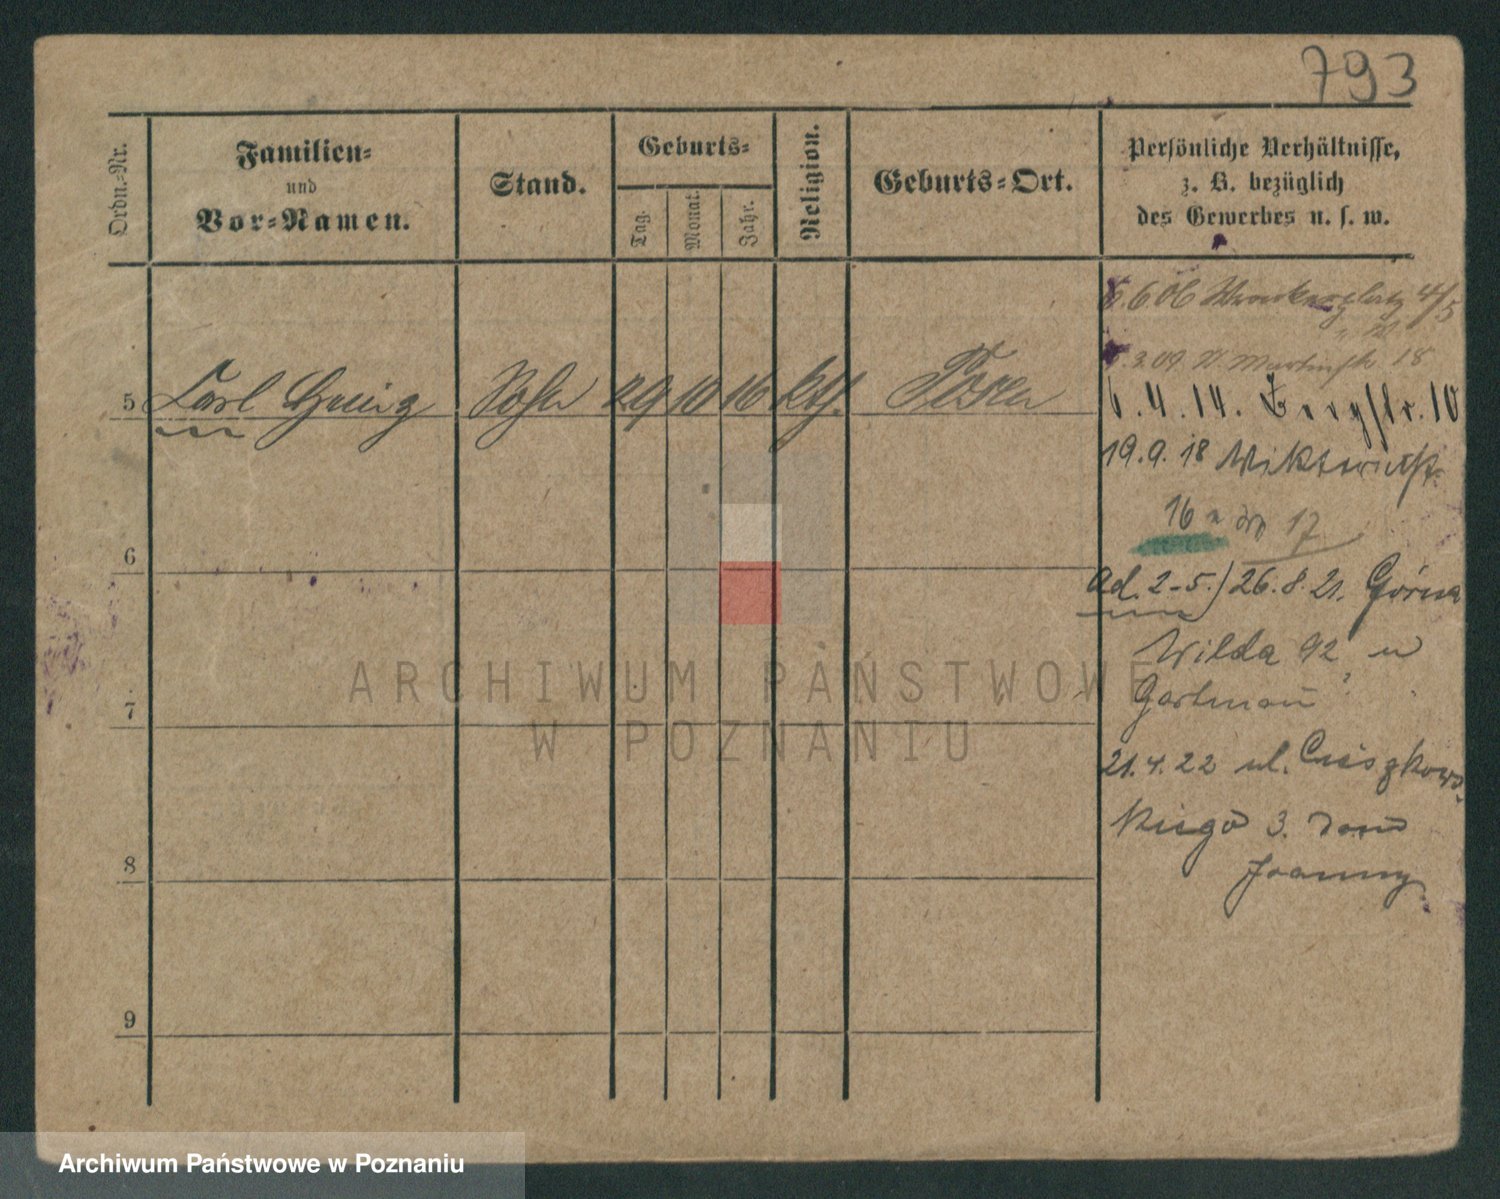 793
Ordn.-Nr.
Familien-
und
Vor-Namen.
Stand.
Geburts-
Tag.
Monat.
Jahr.
Religion.
Geburts-Ort.
Persönliche Verhältnisse,
z. B. bezüglich
des Gewerbes u. s. w.
6.6.06 Wronkerplatz 4/5
3.09. St Martinstr 18
5 Carl Sohn 29 10 16 kth. Posen
6.4.14. Bergstr. 10
19.9.18 Wiktoriastr.
16 17
6
ad. 2-5.) 26.8.21. Górna
Wilda 92 u
7
21.4.22 ul. Cieszkows-
kiego 3. dom
8
Joanny
9
ARCHIWUM PAŃSTWOWE
W POZNANIU
Archiwum Państwowe w Poznaniu